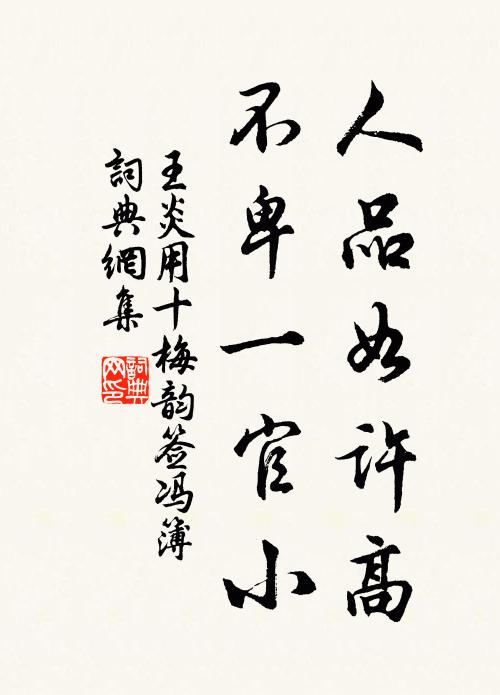 人品如許高
不卑一官小
王炎用十梅韵签冯簿
詞典網集
詞典網印